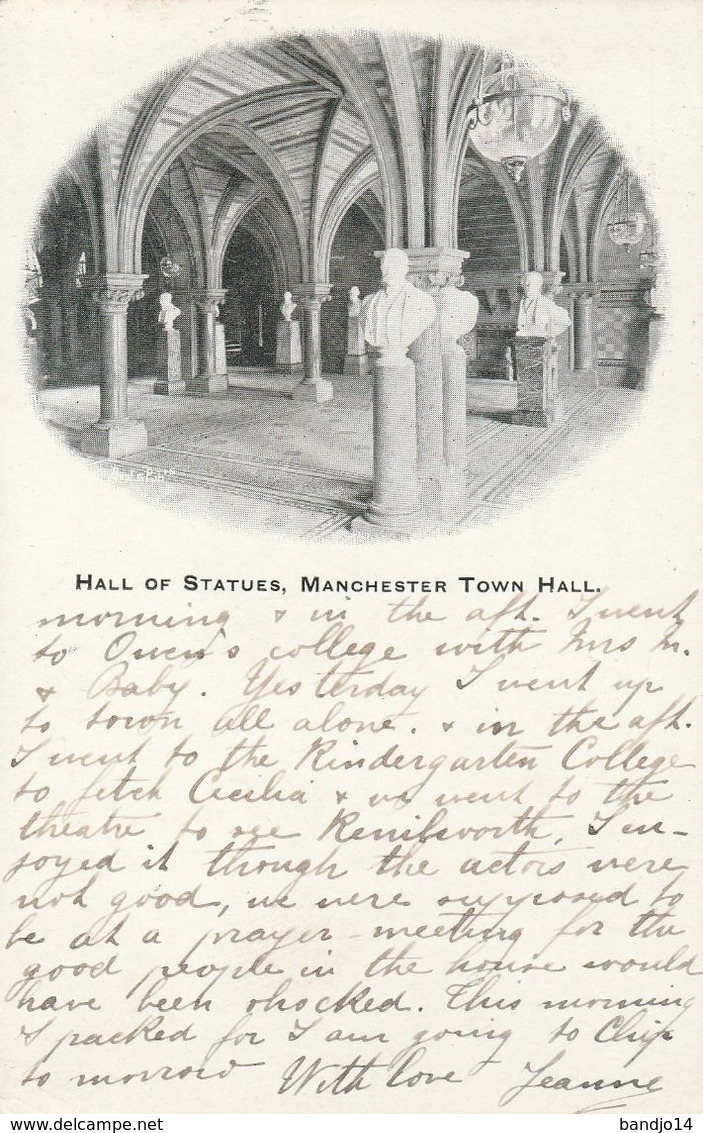 HALL OF STATUES, MANCHESTER TOWN HALL.
morning & in the aft. I went
to Owen's college with Mrs M.
& Baby. Yesterday I went up
to town all alone. & in the aft.
I went to the Kindergarten College
to fetch Cecilia & we went to the
theatre to see Kenilworth, I en-
joyed it though the actors were
not good, we were supposed to
be at a prayer-meeting for the
good people in the house would
have been shocked. This morning
I packed for I am going to Chip
to morrow With love Jeanne
bandjo14